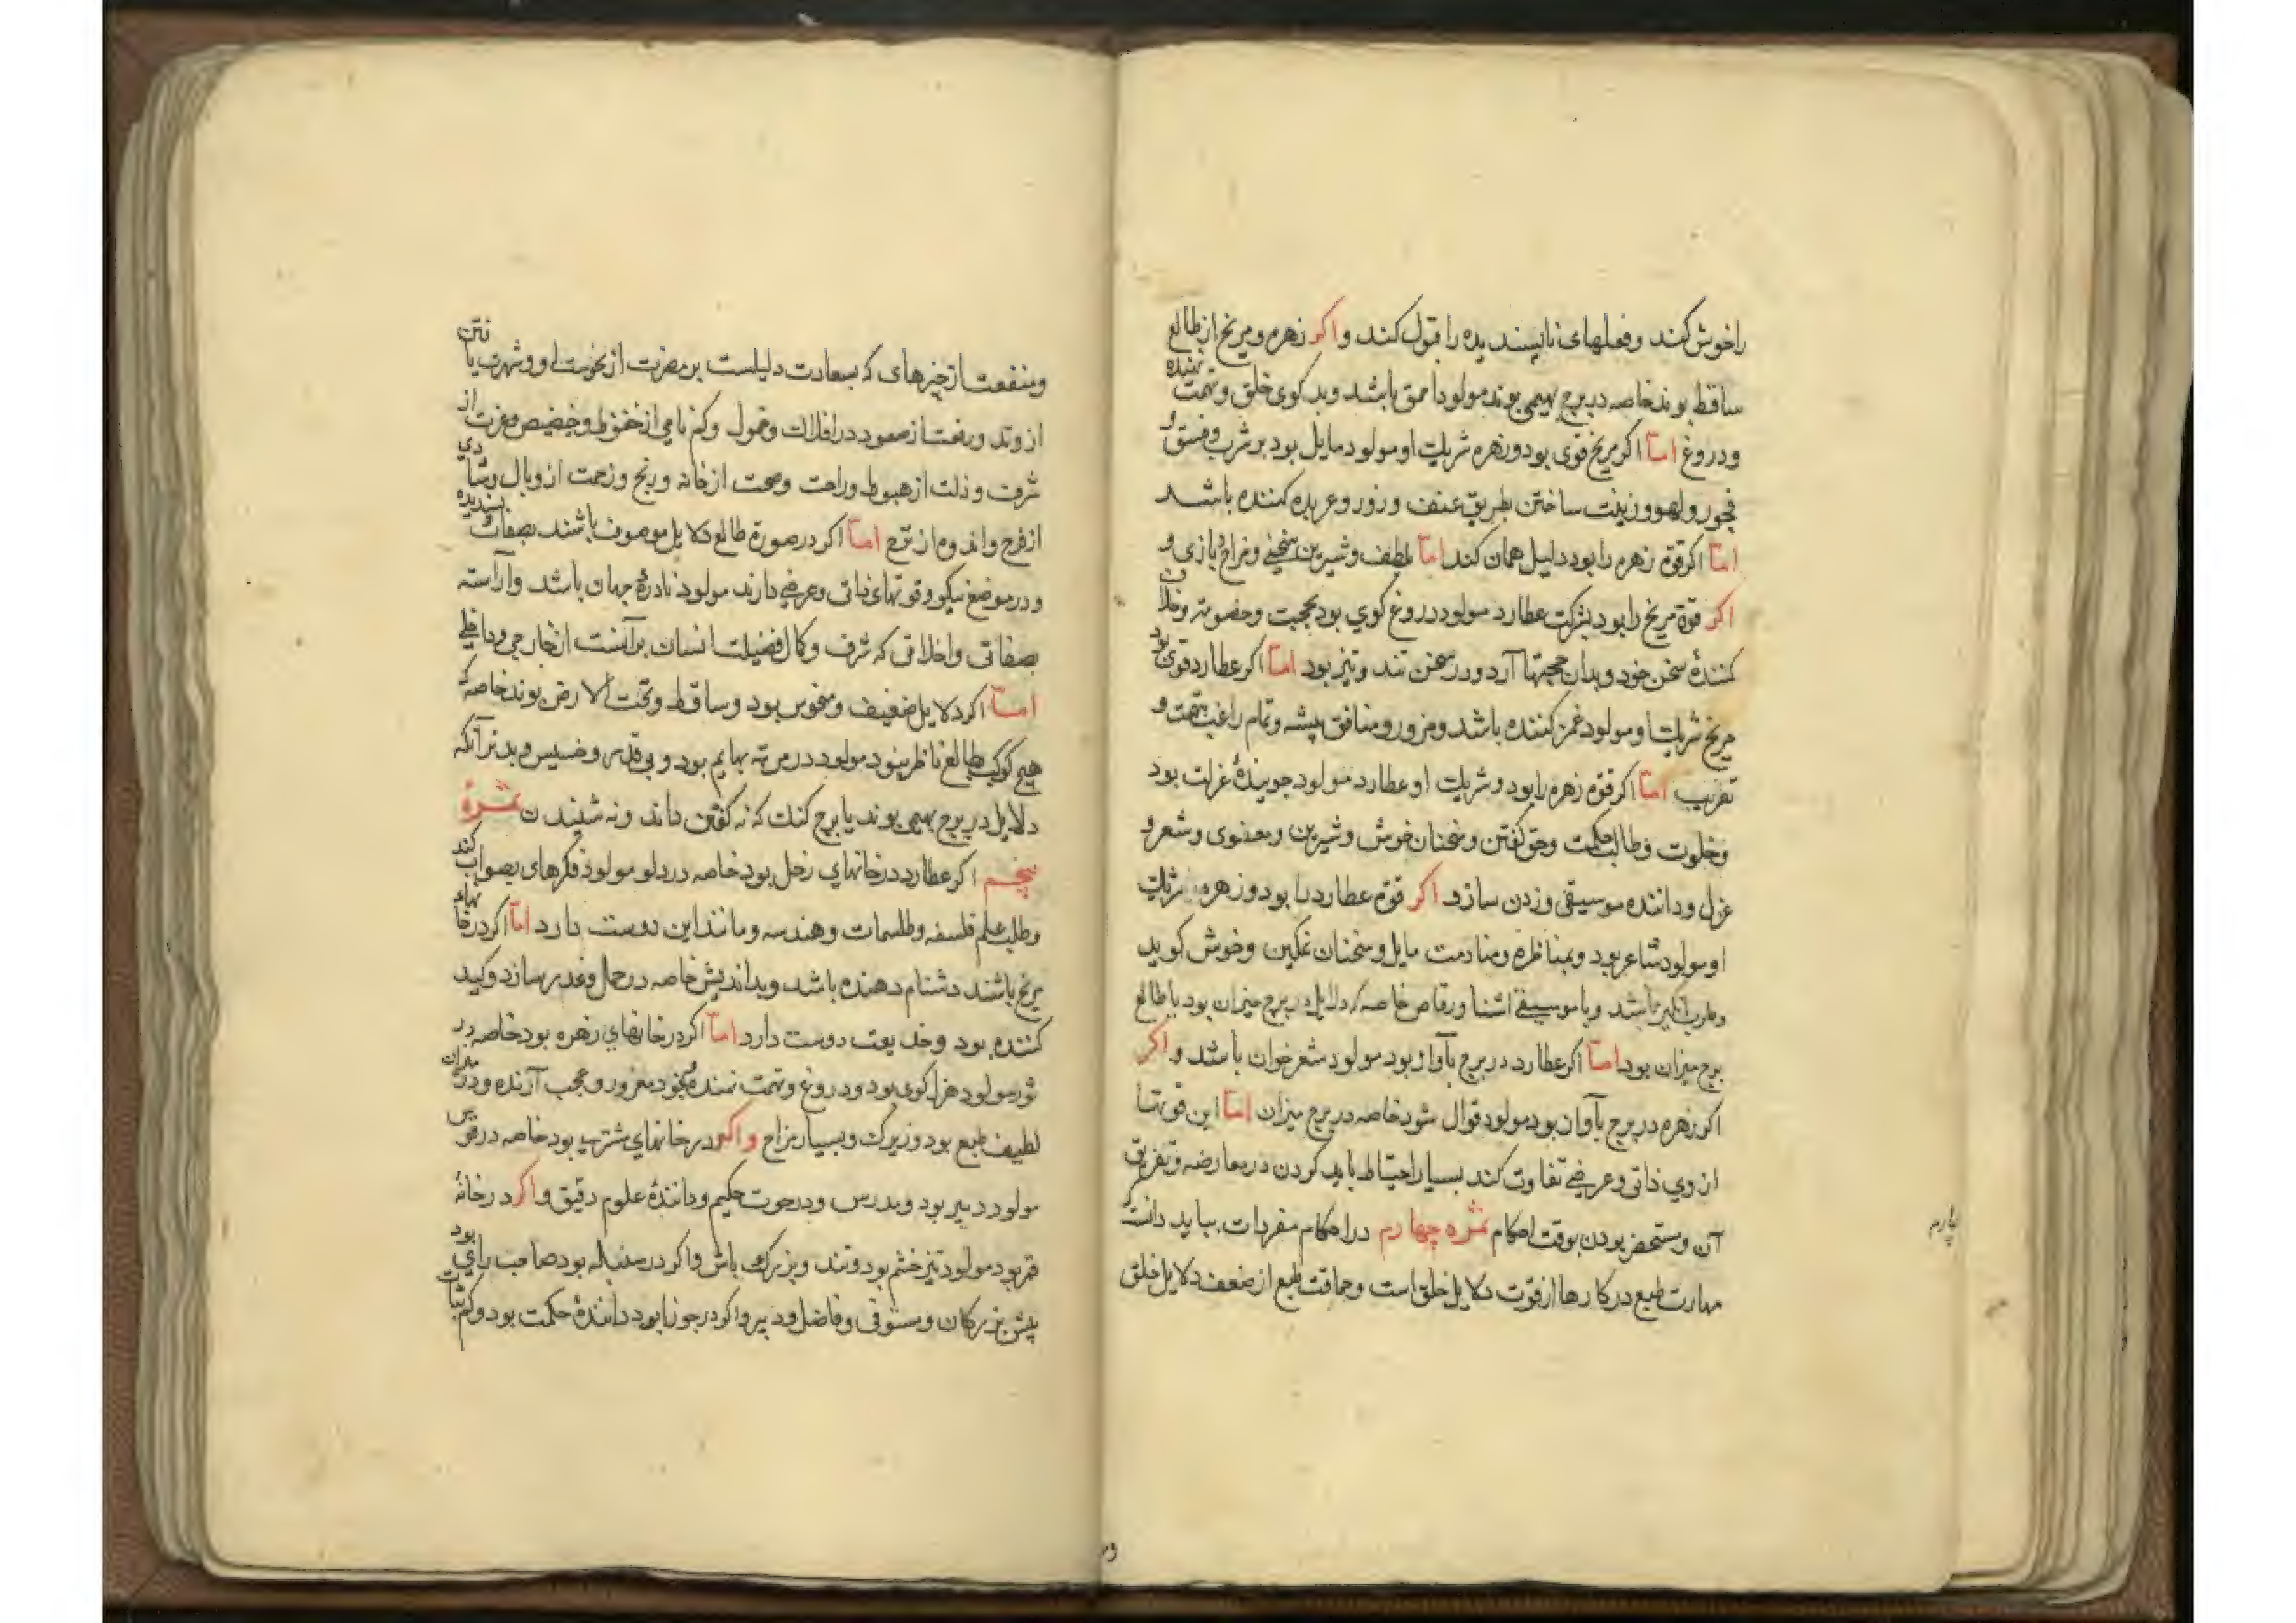 را خوش کند و فعلهای ناپسندیده را قبول کند و اکر زهره و مریخ از طالع
ساقط بوند خاصه در برج بهیمی بوند مولود احمق باشد و بد کوی خلق و تهمت نهنده
و دروغ اما اکر مریخ قوی بود و زهره شریک او مولود مایل بود بر شرب و فسق و
فجور و لهو و زینت ساختن بطریق عنف و زور و عربده کننده باشد
اما اکر قوة زهره را بود دلیل همان کند اما بلطف و شیرین سخنی و مزاح و بازی و
اکر قوة مریخ را بود بشرکت عطارد مولود دروغ کوی بود بحجت و خصومت و خلاف
کنندهٔ سخن خود و بدان حجتها آرد و در سخن تند و تیز بود اما اکر عطارد قوی بود
مریخ شریک او مولود غمز کننده باشد و مزور و منافق پیشه و تمام راغب تهمت و
تضریب اما اکر قوة زهره را بود و شریک او عطارد مولود جویندهٔ عزلت بود
و خلوت و طالب حکمت و حق کفتن و سخنان خوش و شیرین و معنوی و شعر و
غزل و داننده موسیقی و زدن سازد اکر قوة عطارد را بود و زهره شریک
او مولود شاعر بود و بمناظره و منادمت مایل و سخنان نمکین و خوش کوید
و طرب انکیز باشد و با موسیقی اشنا و رقاص خاصه که دلایل در برج میزان بود یا طالع
برج میزان بود اما اکر عطارد در برج باآواز بود مولود شعر خوان باشد و اکر
اکر زهره در برج باآواز بود مولود قوال شود خاصه در برج میزان اما این قوتها
از روی ذاتی و عرضی تفاوت کند بسیار احتیاط باید کردن در معارضه و تفریق
آن و مستحضر بودن بوقت احکام ثمره چهارم در احکام مفردات بباید دانست که
مهارت طبع در کارها از قوت دلایل خلق است و حماقت طبع از ضعف دلایل خلق
و منفعت از چیزهای که بسعادت دلیلست بر مضرت از نحوست او و شهرت یافتن
از وتد و رفعت از صعود در افلاک و خمول و کم نامی از حضیض و عزت از
شرف و ذلت از هبوط و راحت و صحت از خانه و رنج و زحمت از وبال و شادی
از فرح و اندوه از ترح اما اکر در صورة طالع دلایل موصوف باشند بصفات پسندیده
و در موضع نیکو و قوتهای ذاتی و عرضی دارند مولود نادرهٔ جهان باشد و آراسته
بصفاتی و اخلاقی که شرف و کمال فضیلت انسان برآنست از خارجی و داخلی
اما اکر دلایل ضعیف و منحوس بود و ساقط و تحت الارض بوند خاصه که
هیچ کوکب بطالع ناظر نبود مولود در مرتبه بهایم بود و بی قدر و خسیس و بدتر آنکه
دلایل در برج بهیمی بوند یا برج کنک که نه کفتن داند و نه شنیدن ثمرهٔ
پنجم اکر عطارد در خانهای زحل بود خاصه در دلو مولود فکرهای بصواب کند
و طلب علم فلسفه و طلسمات و هندسه و مانند این دوست دارد اما اکر در خانهای
مریخ باشند دشنام دهنده باشد و بد اندیش خاصه در حمل و غدر سازد و کید
کننده بود و خدیعت دوست دارد اما اکر در خانهای زهره بود خاصه در
ثور مولود هزل کوی بود و دروغ و تهمت نهنده و بخود مغرور و عجب آرنده و در میزان
لطیف طبع بود و زیرک و بسیار مزاح و اکر در خانهای مشتری بود خاصه در قوس
مولود دبیر بود و مدرس و در حوت حکیم و دانندهٔ علوم دقیق و اکر در خانهٔ
قمر بود مولود تیز خشم بود و تند و اکر در سنبله بود صاحب رای بود
پیش بزرکان و مستوفی و فاضل و دبیر و اکر در جوزا بود دانندهٔ حکمت بود و کم ثبات